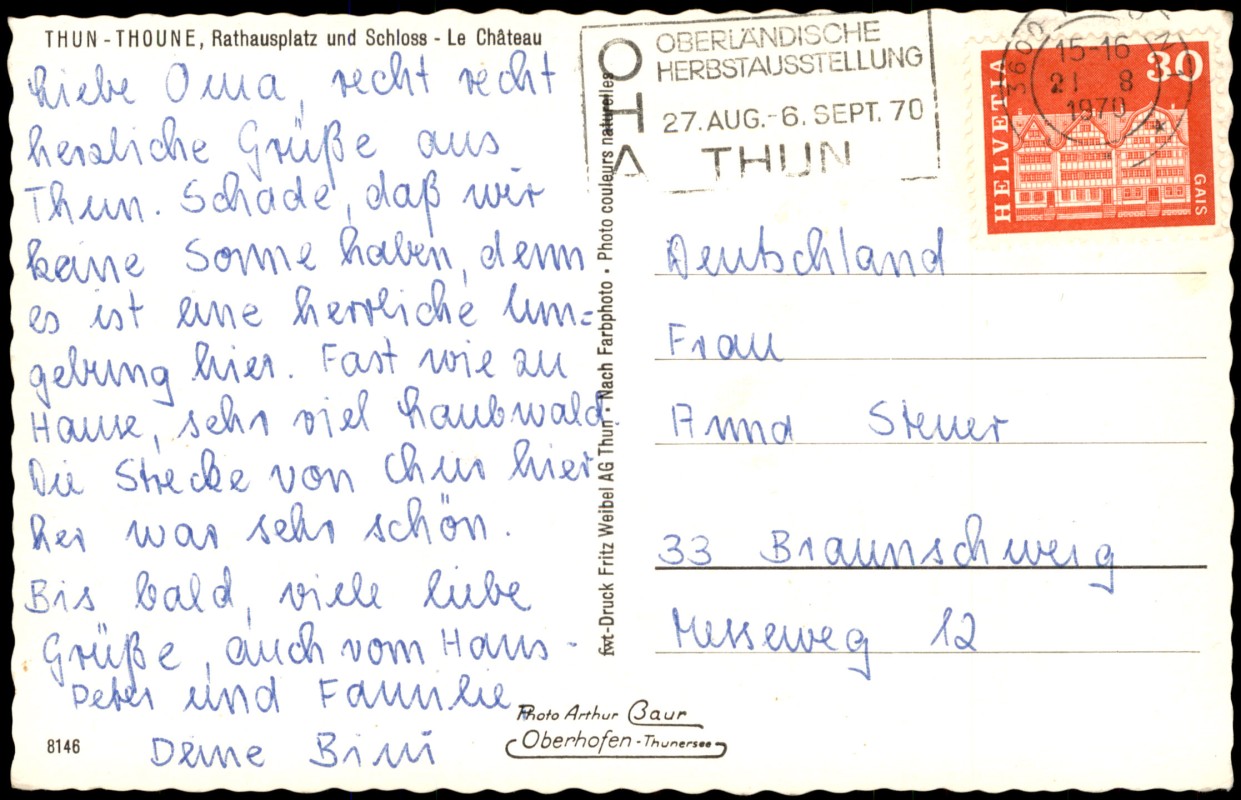 THUN - THOUNE, Rathausplatz und Schloss - Le Château
Liebe Oma, recht recht
herzliche Grüße aus
Thun. Schade, daß wir
keine Sonne haben, denn
es ist eine herrliche Um=
gebung hier. Fast wie zu
Hause, sehr viel Laubwald.
Die Strecke von Chur hier
her war sehr schön.
Bis bald, viele liebe
Grüße, auch vom Hans-
Peter und Familie,
Deine Bini
8146
fwt-Druck Fritz Weibel AG Thun • Nach Farbphoto • Photo couleurs naturelles
Photo Arthur Baur
Oberhofen - Thunersee
OHA
OBERLÄNDISCHE
HERBSTAUSSTELLUNG
27. AUG. - 6. SEPT. 70
THUN
3600
15-16
21 8
1970
HELVETIA
30
GAIS
Deutschland
Frau
Anna Steuer
33 Braunschweig
Messeweg 12